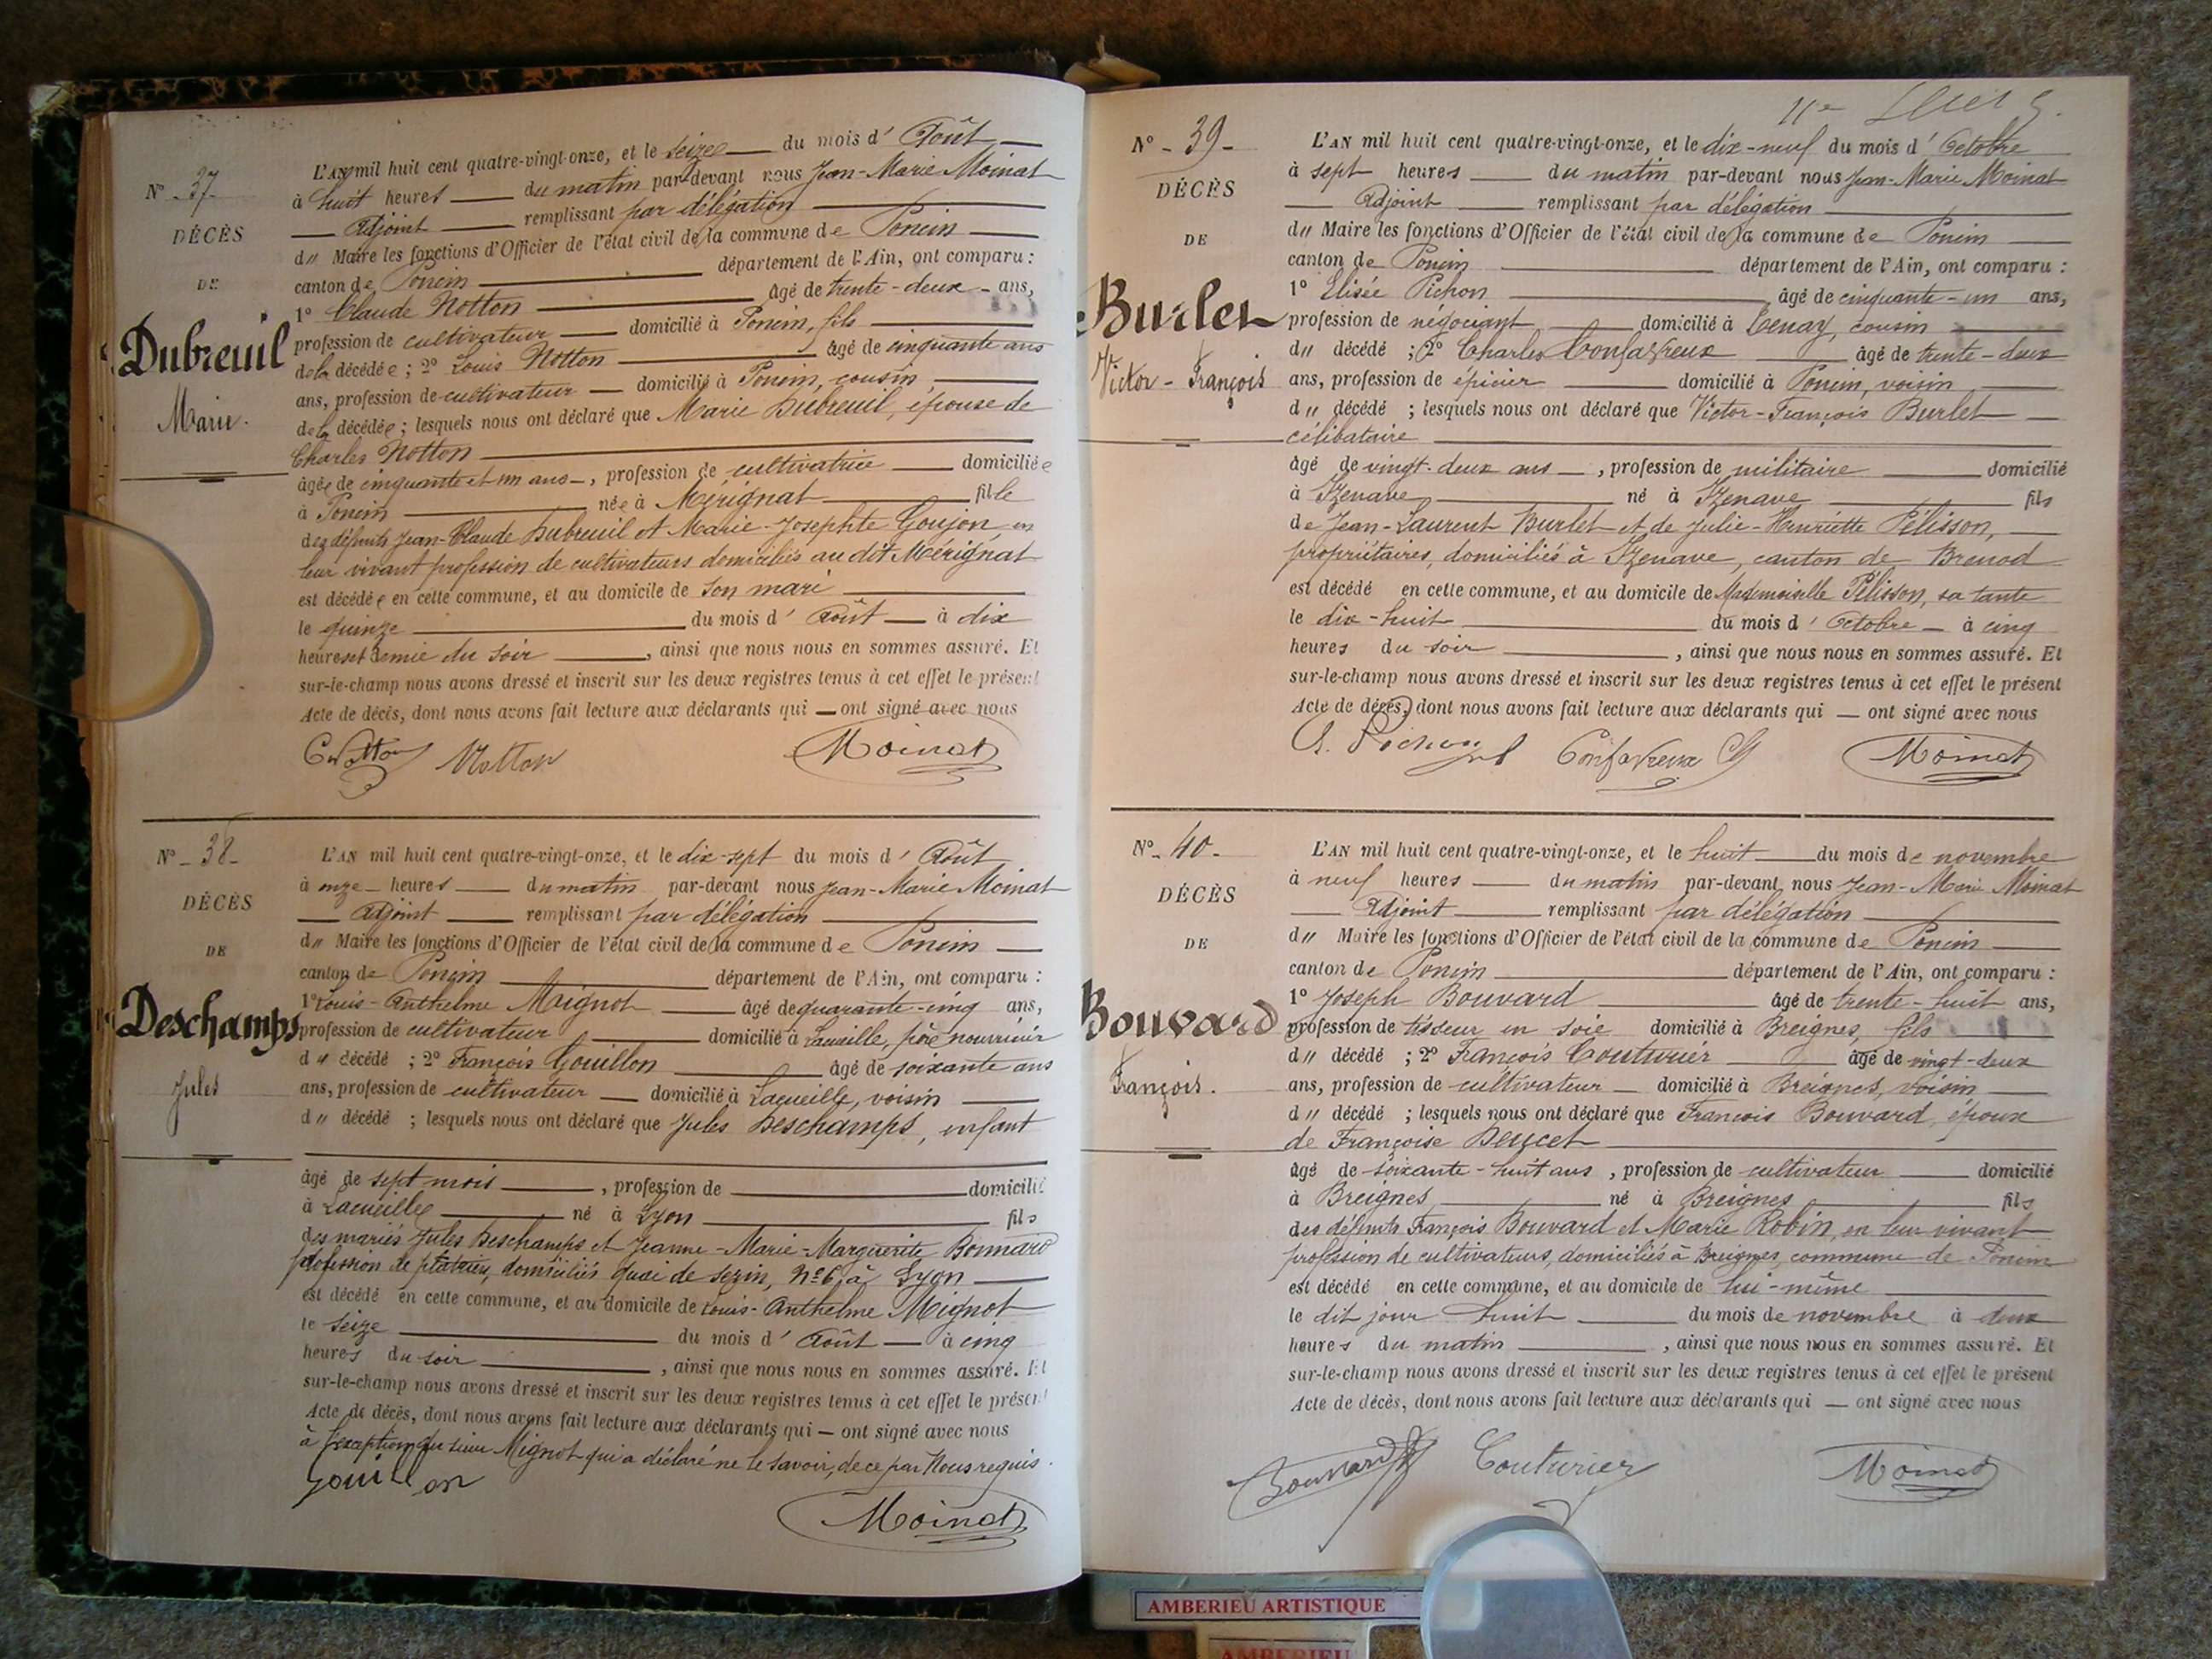 Nº 37
DÉCÈS
DE
Dubreuil
Marie.
L'AN mil huit cent quatre-vingt-onze, et le seize du mois d' Août
à huit heures du matin par-devant nous Jean-Marie Moinat
Adjoint remplissant par délégation
d" Maire les fonctions d'Officier de l'état civil de la commune de Poncin
canton de Poncin département de l'Ain, ont comparu :
1º Claude Notton âgé de trente-deux ans,
profession de cultivateur domicilié à Poncin, fils
de la décédée ; 2º Louis Notton âgé de cinquante ans
ans, profession de cultivateur domicilié à Poncin, cousin
de la décédée ; lesquels nous ont déclaré que Marie Dubreuil, épouse de
Charles Notton
âgée de cinquante et un ans, profession de cultivatrice domiciliée
à Poncin née à Mérignat fille
des défunts Jean-Claude Dubreuil et Marie-Josephte Goujon en
leur vivant profession de cultivateurs domiciliés au dit Mérignat
est décédée en cette commune, et au domicile de son mari
le quinze du mois d' Août à dix
heures et demie du soir, ainsi que nous nous en sommes assuré. Et
sur-le-champ nous avons dressé et inscrit sur les deux registres tenus à cet effet le présent
Acte de décès, dont nous avons fait lecture aux déclarants qui — ont signé avec nous
C Notton Notton Moinat
Nº 38
DÉCÈS
DE
Deschamps
Jules
L'AN mil huit cent quatre-vingt-onze, et le dix-sept du mois d' Août
à onze heures du matin par-devant nous Jean-Marie Moinat
Adjoint remplissant par délégation
d" Maire les fonctions d'Officier de l'état civil de la commune de Poncin
canton de Poncin département de l'Ain, ont comparu :
1º Louis-Anthelme Mignot âgé de quarante-cinq ans,
profession de cultivateur domicilié à Lacueille, père nourricier
d" décédé ; 2º François Gouillon âgé de soixante ans
ans, profession de cultivateur domicilié à Lacueille, voisin
d" décédé ; lesquels nous ont déclaré que Jules Deschamps, enfant
âgé de sept mois, profession de domicilié
à Lacueille né à Lyon fils
des mariés Jules Deschamps et Jeanne-Marie-Marguerite Bonnard
profession de platrier, domiciliés quai de Serin, nº 6, à Lyon
est décédé en cette commune, et au domicile de Louis-Anthelme Mignot
le seize du mois d' Août à cinq
heures du soir, ainsi que nous nous en sommes assuré. Et
sur-le-champ nous avons dressé et inscrit sur les deux registres tenus à cet effet le présent
Acte de décès, dont nous avons fait lecture aux déclarants qui — ont signé avec nous
à l'exception du sieur Mignot qui a déclaré ne le savoir, de ce par Nous requis.
Gouillon
Moinat
Nº 39
DÉCÈS
DE
Burlet
Victor-François
L'AN mil huit cent quatre-vingt-onze, et le dix-neuf du mois d' Octobre
à sept heures du matin par-devant nous Jean-Marie Moinat
Adjoint remplissant par délégation
d" Maire les fonctions d'Officier de l'état civil de la commune de Poncin
canton de Poncin département de l'Ain, ont comparu :
1º Elisée Pichon âgé de cinquante-un ans,
profession de négociant domicilié à Tenay, cousin
d" décédé ; 2º Charles Confavreux âgé de trente-deux
ans, profession de épicier domicilié à Poncin, voisin
d" décédé ; lesquels nous ont déclaré que Victor-François Burlet
célibataire
âgé de vingt-deux ans, profession de militaire domicilié
à Izenave né à Izenave fils
de Jean-Laurent Burlet et de Julie-Henriette Pélisson,
propriétaires, domiciliés à Izenave, canton de Brenod
est décédé en cette commune, et au domicile de Mademoiselle Pélisson, sa tante
le dix-huit du mois d' Octobre à cinq
heures du soir, ainsi que nous nous en sommes assuré. Et
sur-le-champ nous avons dressé et inscrit sur les deux registres tenus à cet effet le présent
Acte de décès, dont nous avons fait lecture aux déclarants qui — ont signé avec nous
E. Pichon Confavreux Moinat
Nº 40.
DÉCÈS
DE
Bouvard
François.
L'AN mil huit cent quatre-vingt-onze, et le huit du mois de novembre
à neuf heures du matin par-devant nous Jean-Marie Moinat
Adjoint remplissant par délégation
d" Maire les fonctions d'Officier de l'état civil de la commune de Poncin
canton de Poncin département de l'Ain, ont comparu :
1º Joseph Bouvard âgé de trente-huit ans,
profession de tisseur en soie domicilié à Breignes, fils
d" décédé ; 2º François Couturier âgé de vingt-deux
ans, profession de cultivateur domicilié à Breignes, voisin
d" décédé ; lesquels nous ont déclaré que François Bouvard, époux
de Françoise
âgé de soixante-huit ans, profession de cultivateur domicilié
à Breignes né à Breignes fils
des défunts François Bouvard et Marie Robin, en leur vivant
profession de cultivateurs, domiciliés à Breignes, commune de Poncin
est décédé en cette commune, et au domicile de lui-même
le dit jour huit du mois de novembre à deux
heures du matin, ainsi que nous nous en sommes assuré. Et
sur-le-champ nous avons dressé et inscrit sur les deux registres tenus à cet effet le présent
Acte de décès, dont nous avons fait lecture aux déclarants qui — ont signé avec nous
Bouvard Couturier Moinat
AMBERIEU ARTISTIQUE
AMBERIEU